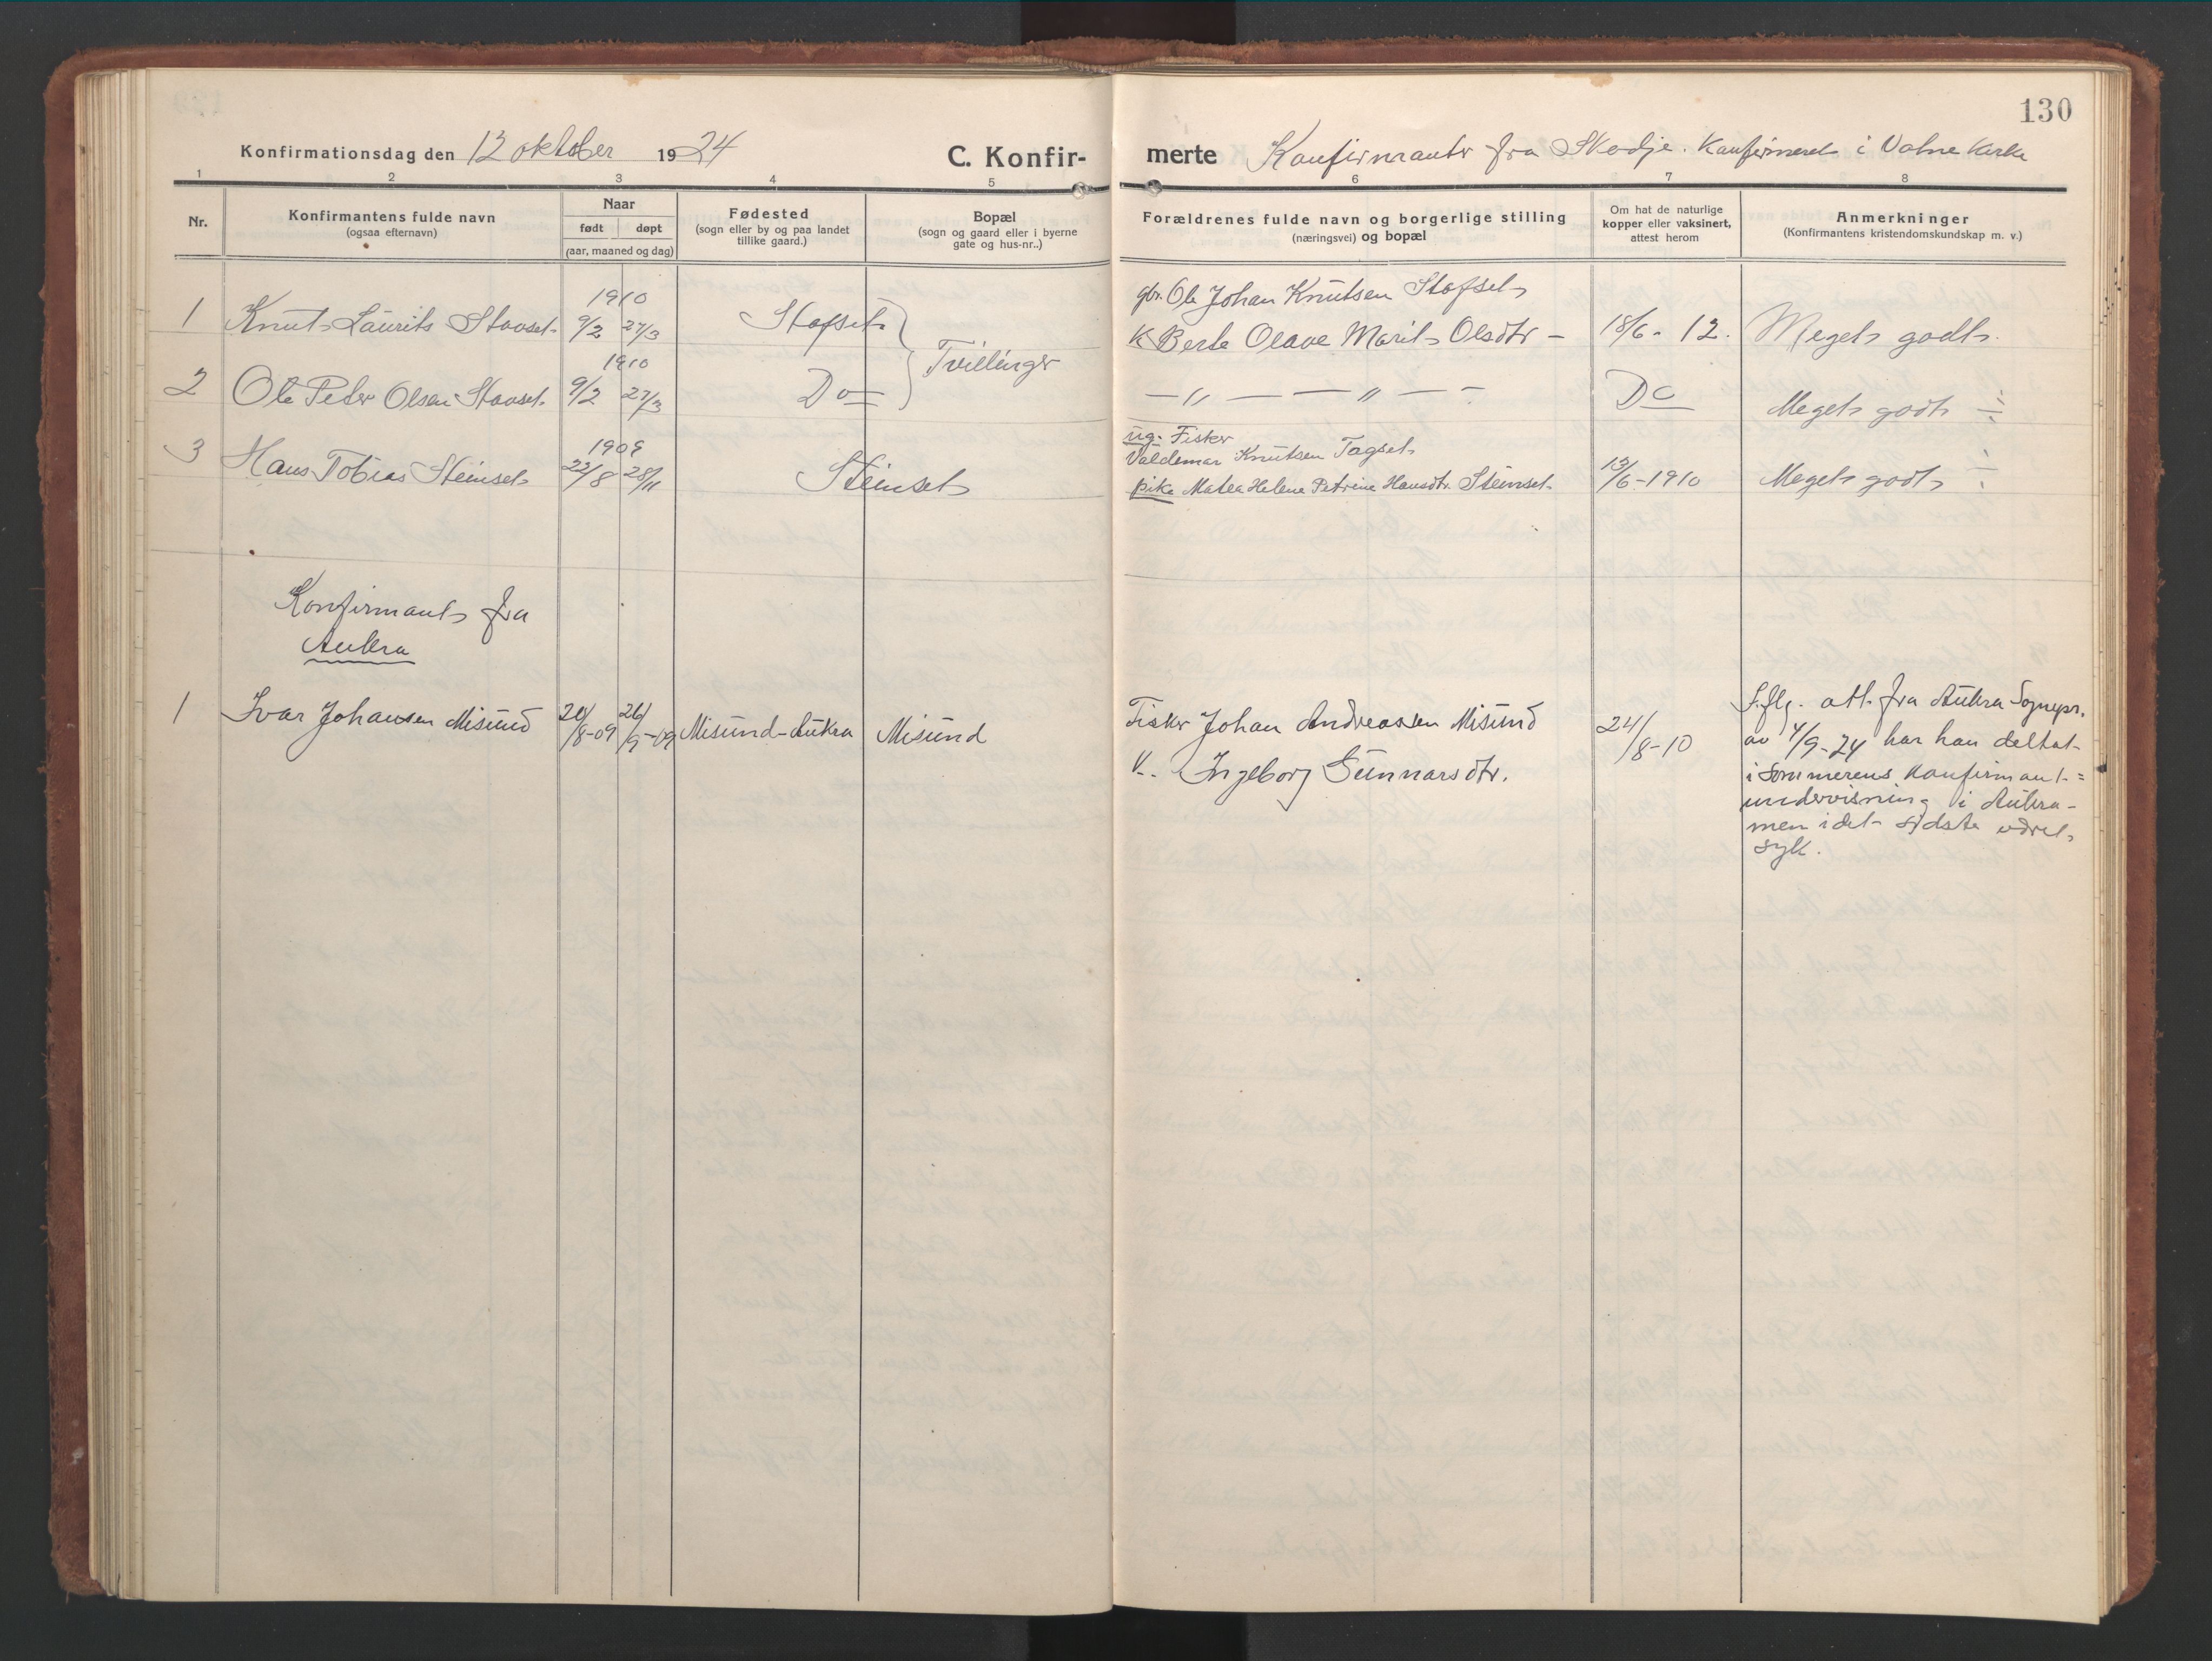 130
Konfirmationsdag den 12 oktober 1924
C. Konfir-
merte Konfirmanter fra Skodje. Konfirmeret i Vatne Kirke
1 2 3 4 5 6 7 8
Nr.
Konfirmantens fulde navn
(ogsaa efternavn)
Naar
født døpt
(aar, maaned og dag)
Fødested
(sogn eller by og paa landet
tillike gaard.)
Bopæl
(sogn og gaard eller i byerne
gate og hus-nr..)
Forældrenes fulde navn og borgerlige stilling
(næringsvei) og bopæl
Om hat de naturlige
kopper eller vaksinert,
attest herom
Anmerkninger
(Konfirmantens kristendomskundskap m. v.)
1910 gbr. Ole Johan Knutsen Stafset
1 Knut Laurits Stavset 9/2 27/3 Stafset K Berte Olave Marit Olsdtr — 18/6 - 12. Meget godt.
1910 Tvillinger
2 Ole Peder Olsen Stavset. 9/2 27/3 Do — „ — — „ — — Do Meget godt ÷
1909 ug. Fisker
Valdemar Knutsen Tagset
3 Hans Tobias Steinset 22/8 28/11 Steinset pike Matea Helene Petrine Hansdtr. Steinset 13/6-1910 Meget godt ÷
Konfirmant fra
Aukra
1 Ivar Johansen Misund 20/8-09 26/9-09 Misund-Aukra Misund Fisker Johan Andreassen Misund 24/8-10
K. Ingeborg Gunnarsdtr.
S.flg. att. fra Aukra Sognepr.
av 4/9-24 har han deltat
i sommerens konfirmant=
undervisning i Aukra -
men i det sidste været
syk.